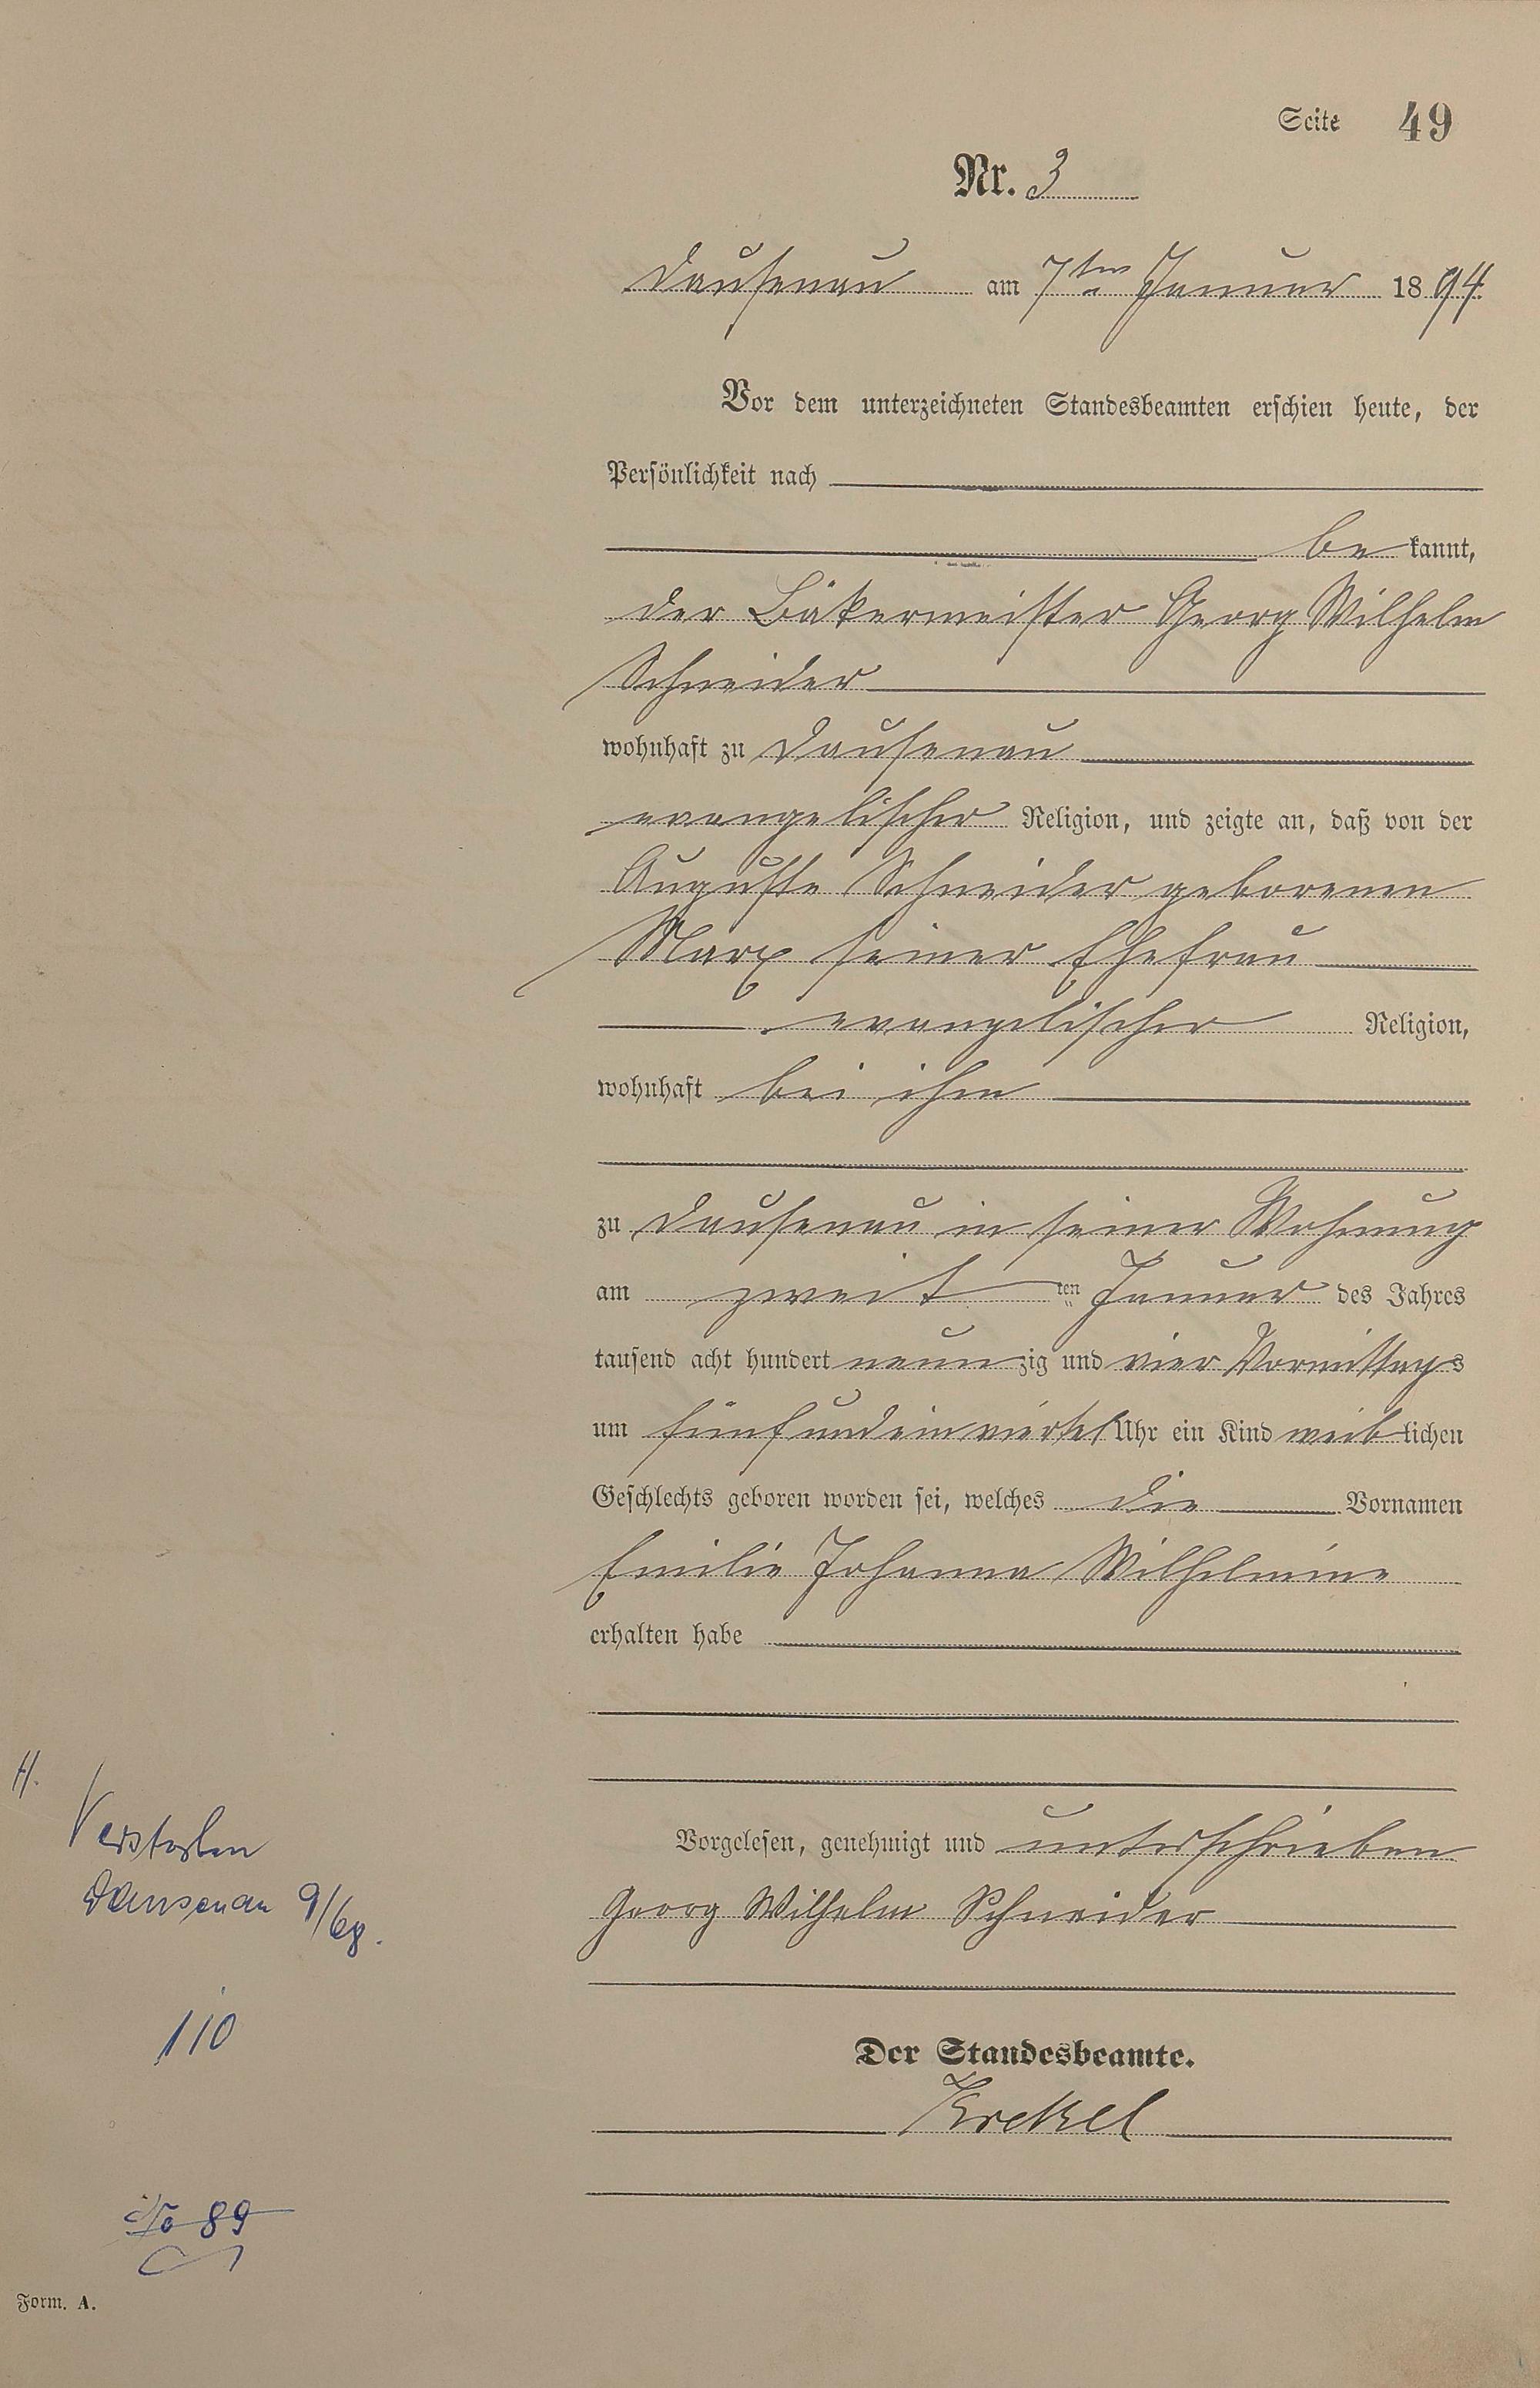 Seite 49
Nr. 3
Dausenau am 7ten Januar 1894.
Vor dem unterzeichneten Standesbeamten erschien heute, der
Persönlichkeit nach
be kannt,
der Bäkermeister Georg Wilhelm
Schneider
wohnhaft zu Dausenau
evangelischer Religion, und zeigte an, daß von der
Auguste Schneider geborenen
Marx seiner Ehefrau
evangelischer Religion,
wohnhaft bei ihm
zu Dausenau in seiner Wohnung
am zweit ten Januar des Jahres
tausend acht hundert neun zig und vier Vormittags
um fünf und ein viertel Uhr ein Kind weib lichen
Geschlechts geboren worden sei, welches die Vornamen
Emilie Johanna Wilhelmine
erhalten habe
H.
Verstorben
Dausenau 9/68.
110
Vorgelesen, genehmigt und unterschrieben
Georg Wilhelm Schneider
Der Standesbeamte.
Krekel
89
Form. A.